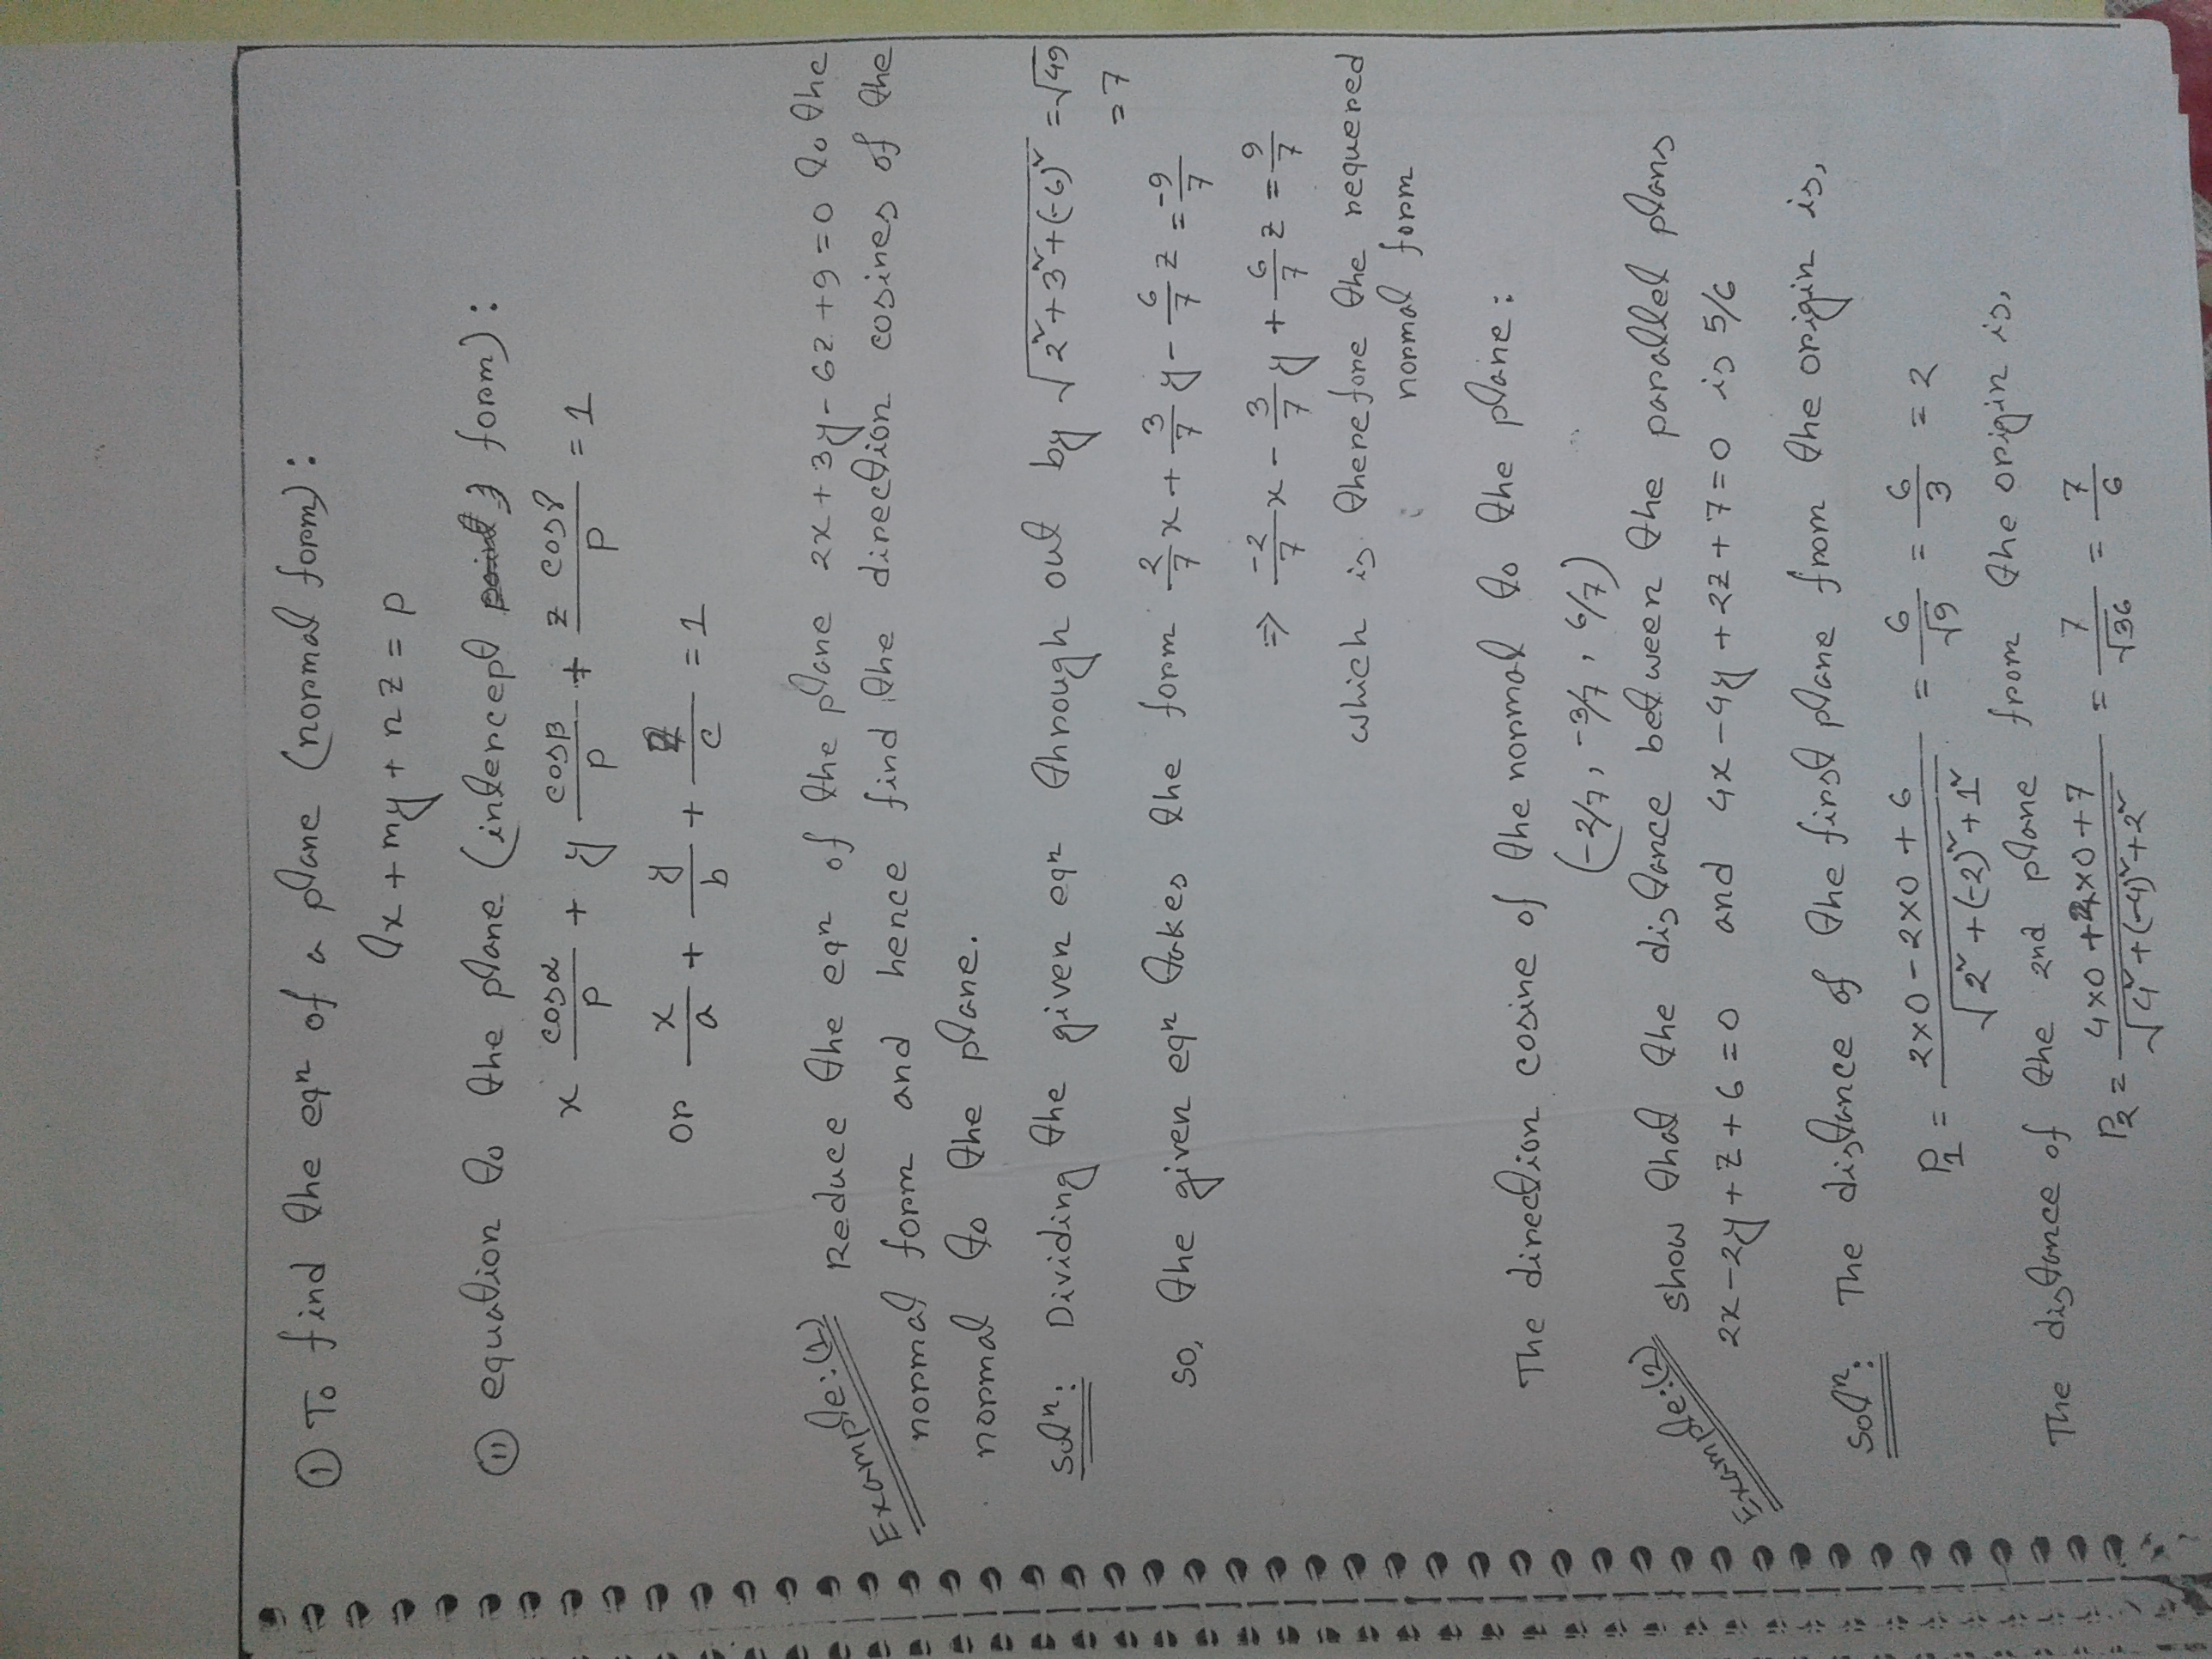 ① To find the eqⁿ of a plane (normal form):
lx + my + nz = p
⑪ equation to the plane (intercept form):
x cosα/p + y cosβ/p + z cosγ/p = 1
or x/a + y/b + z/c = 1
Example:(1) Reduce the eqⁿ of the plane 2x + 3y - 6z + 9 = 0 to the
normal form and hence find the direction cosines of the
normal to the plane.
Solⁿ: Dividing the given eqⁿ through out by √(2² + 3² + (-6)²) = √49
= 7
so, the given eqⁿ takes the form 2/7 x + 3/7 y - 6/7 z = -9/7
⇒ -2/7 x - 3/7 y + 6/7 z = 9/7
which is therefore the requered
normal form
The direction cosine of the normal to the plane:
(-2/7, -3/7, 6/7)
Example:(2) show that the distance between the parallel plans
2x - 2y + z + 6 = 0 and 4x - 4y + 2z + 7 = 0 is 5/6
Solⁿ: The distance of the first plane from the origin is,
P₁ = 2×0 - 2×0 + 6 / √(2² + (-2)² + 1²) = 6/√9 = 6/3 = 2
The distance of the 2nd plane from the origin is,
P₂ = 4×0 + 2×0 + 7 / √(4² + (-4)² + 2²) = 7/√36 = 7/6